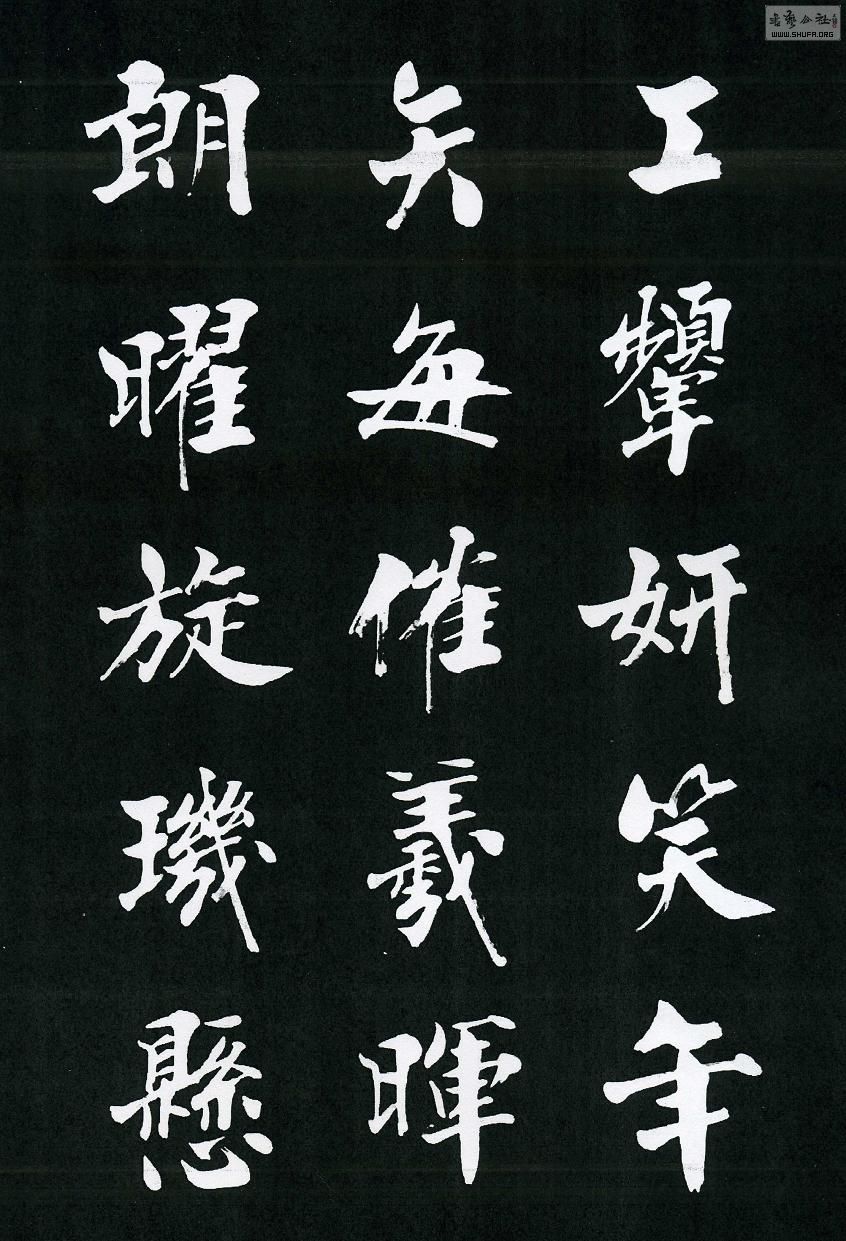 工顰妍笑年
矢每催羲暉
朗曜旋璣懸
書藝公社
WWW.SHUFA.ORG